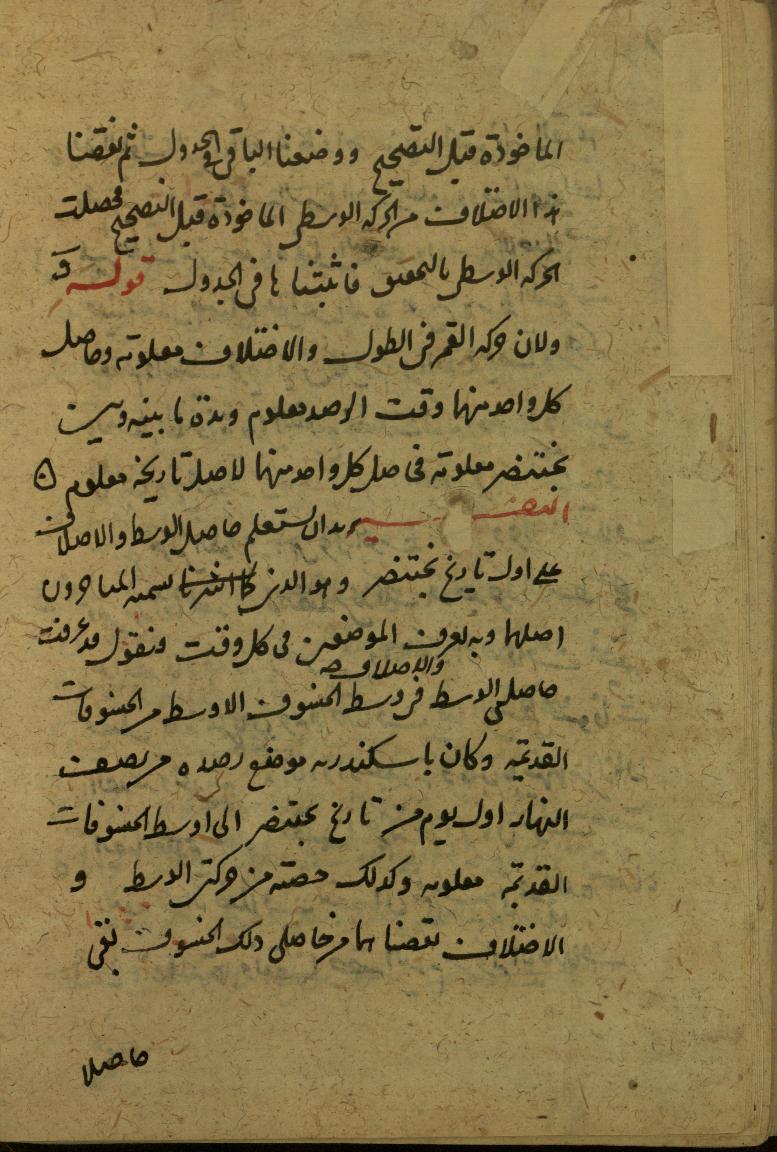 الماخوذة قبل التصحيح ووضعنا الباقى فى الجدول ثم نقصنا
هذا الاختلاف من الحركه الوسطى الماخوذة قبل التصحيح فحصلت
الحركه الوسطى بالتحقيق فاثبتنا ها فى الجدول قوله
ولان حركه القمر فى الطول والاختلاف معلومة وحاصل
كل واحد منهما وقت الرصد معلوم ومدة ما بينه وبين
بختنصر معلومة فحاصل كل واحد منهما لاصل تاريخه معلوم ه
التفسير يريد ان يستعلم حاصل الوسط والاختلاف
على اول تاريخ بختنصر وهو الذى يسميه المتاخرون
اصلها وبه يعرف الموضعين فى كل وقت فنقول قد عرفت
والاختلاف
حاصلى الوسط فى وسط الخسوف الاوسط من الخسوفات
القديمة وكان باسكندريه موضع رصده من نصف
النهار اول يوم من تاريخ بختنصر الى اوسط الخسوفات
القديمة معلومه وكذلك حصته من حركتى الوسط و
الاختلاف نقصنا هما من حاصلى ذلك الخسوف بقى
حاصلا